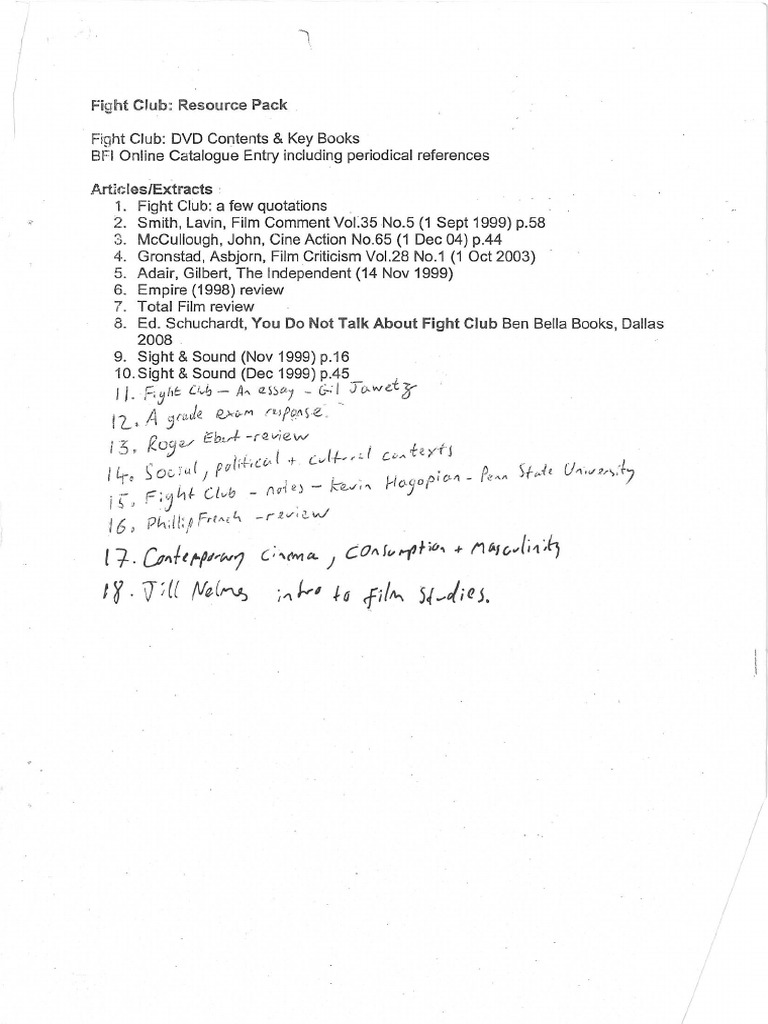 Fight Club: Resource Pack
Fight Club: DVD Contents & Key Books
BFI Online Catalogue Entry including periodical references
Articles/Extracts
1. Fight Club: a few quotations
2. Smith, Lavin, Film Comment Vol.35 No.5 (1 Sept 1999) p.58
3. McCullough, John, Cine Action No.65 (1 Dec 04) p.44
4. Gronstad, Asbjorn, Film Criticism Vol.28 No.1 (1 Oct 2003)
5. Adair, Gilbert, The Independent (14 Nov 1999)
6. Empire (1998) review
7. Total Film review
8. Ed. Schuchardt, You Do Not Talk About Fight Club Ben Bella Books, Dallas
2008
9. Sight & Sound (Nov 1999) p.16
10. Sight & Sound (Dec 1999) p.45
11. Fight Club – An essay – Gil Jawetz
12. A grade exam response.
13. Roger Ebert - review
14. Social, political + cultural contexts
15. Fight Club - notes - Kevin Hagopian - Penn State University
16. Phillip French - review
17. Contemporary cinema, consumption + masculinity
18. Jill Nelmes intro to film studies.